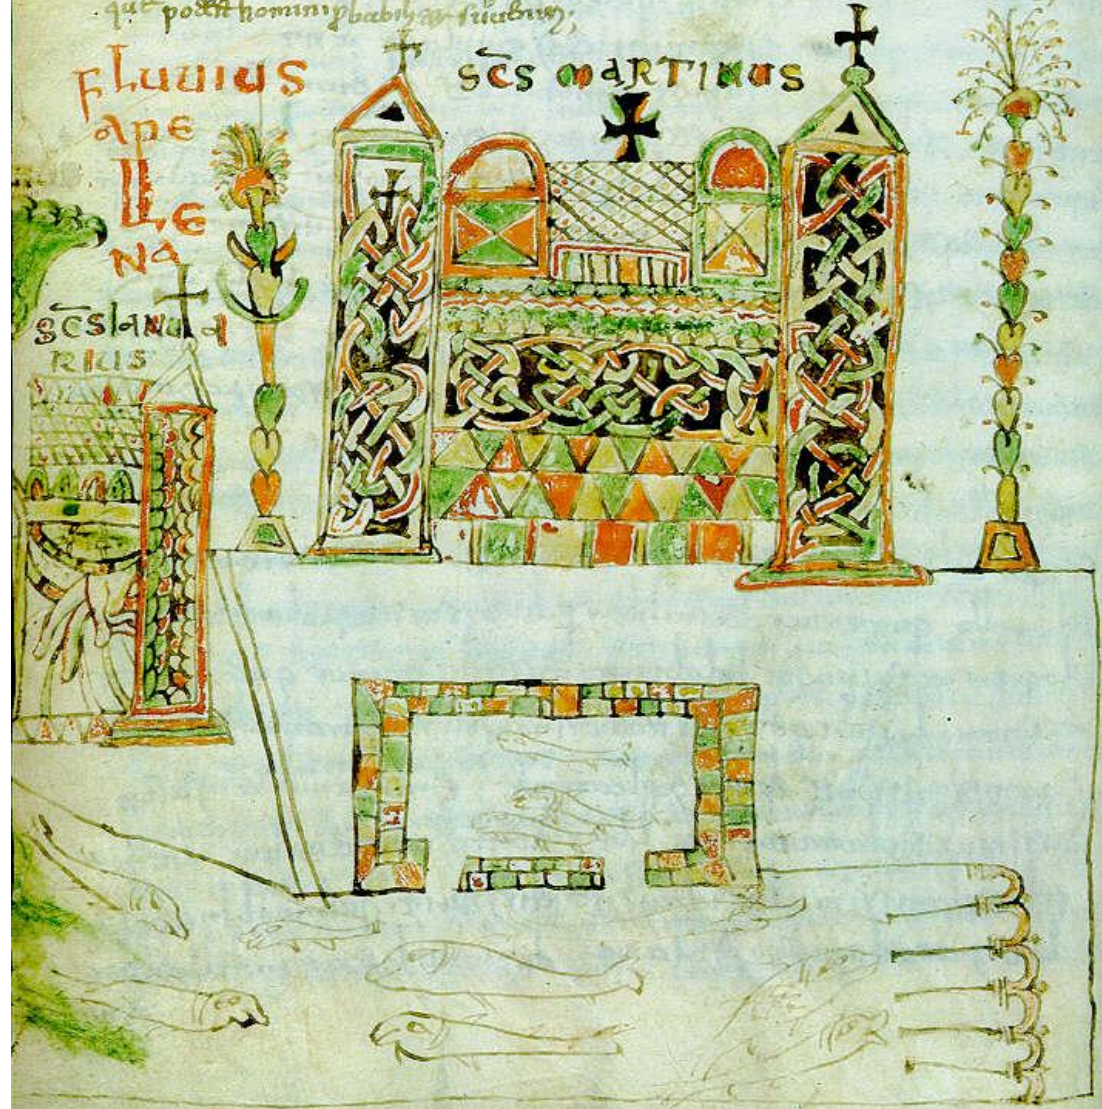 homini
FLUUIUS
APE
LLE
NA
SC̄S MARTINUS
SC̄S IANUA
RIUS